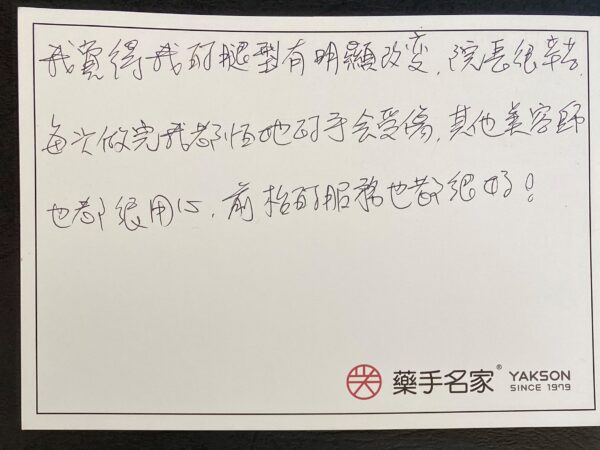 我覺得我的腿型有明顯改变，院長很辛苦，
每次做完我都怕她的手会受傷，其他美容師
也都很用心，前枱的服務也都很好！
藥手名家® YAKSON
SINCE 1979